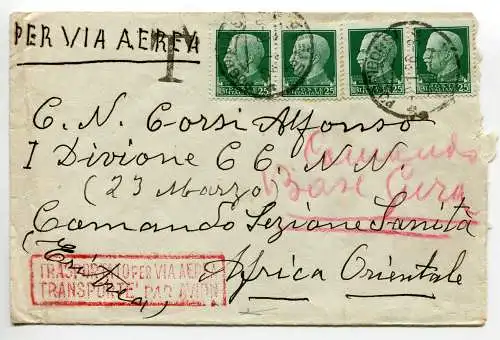 PER VIA AEREA
T
POSTE ITALIANE 25
POSTE ITALIANE 25
POSTE ITALIANE 25
POSTE ITALIANE 25
C. N. Corsi Alfonso
I Divione C C. N N.
(23 Marzo
Comando
Base Cura
Comando Sezione Sanità
(Eritrea)
Africa Orientale
TRASPORTATO PER VIA AEREA
TRANSPORTE' PAR AVION